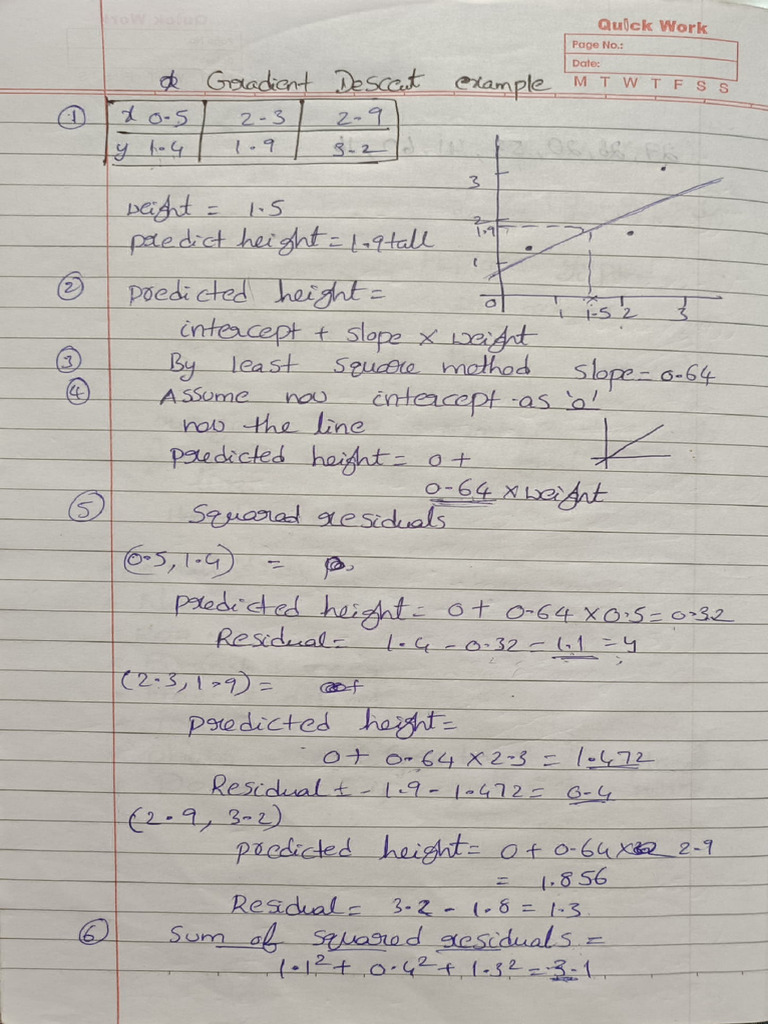 Quick Work
Page No.:
Date:
M T W T F S S
Gradient Descent example
① x 0.5 2.3 2.9
y 1.4 1.9 3.2
weight = 1.5
predict height = 1.9 tall
3
2
1.9
1
0 1 1.5 2 3
② predicted height =
intercept + slope × weight
③ By least square method slope = 0.64
④ Assume now intercept as '0'
now the line
predicted height = 0 +
0.64 × weight
⑤ Squared residuals
(0.5, 1.4) =
predicted height = 0 + 0.64 × 0.5 = 0.32
Residual = 1.4 - 0.32 = 1.1 = y
(2.3, 1.9) =
predicted height =
0 + 0.64 × 2.3 = 1.472
Residual = - 1.9 - 1.472 = 0.4
(2.9, 3.2)
predicted height = 0 + 0.64 × 2.9
= 1.856
Residual = 3.2 - 1.8 = 1.3
⑥ Sum of squared residuals =
1.1² + 0.4² + 1.3² = 3.1